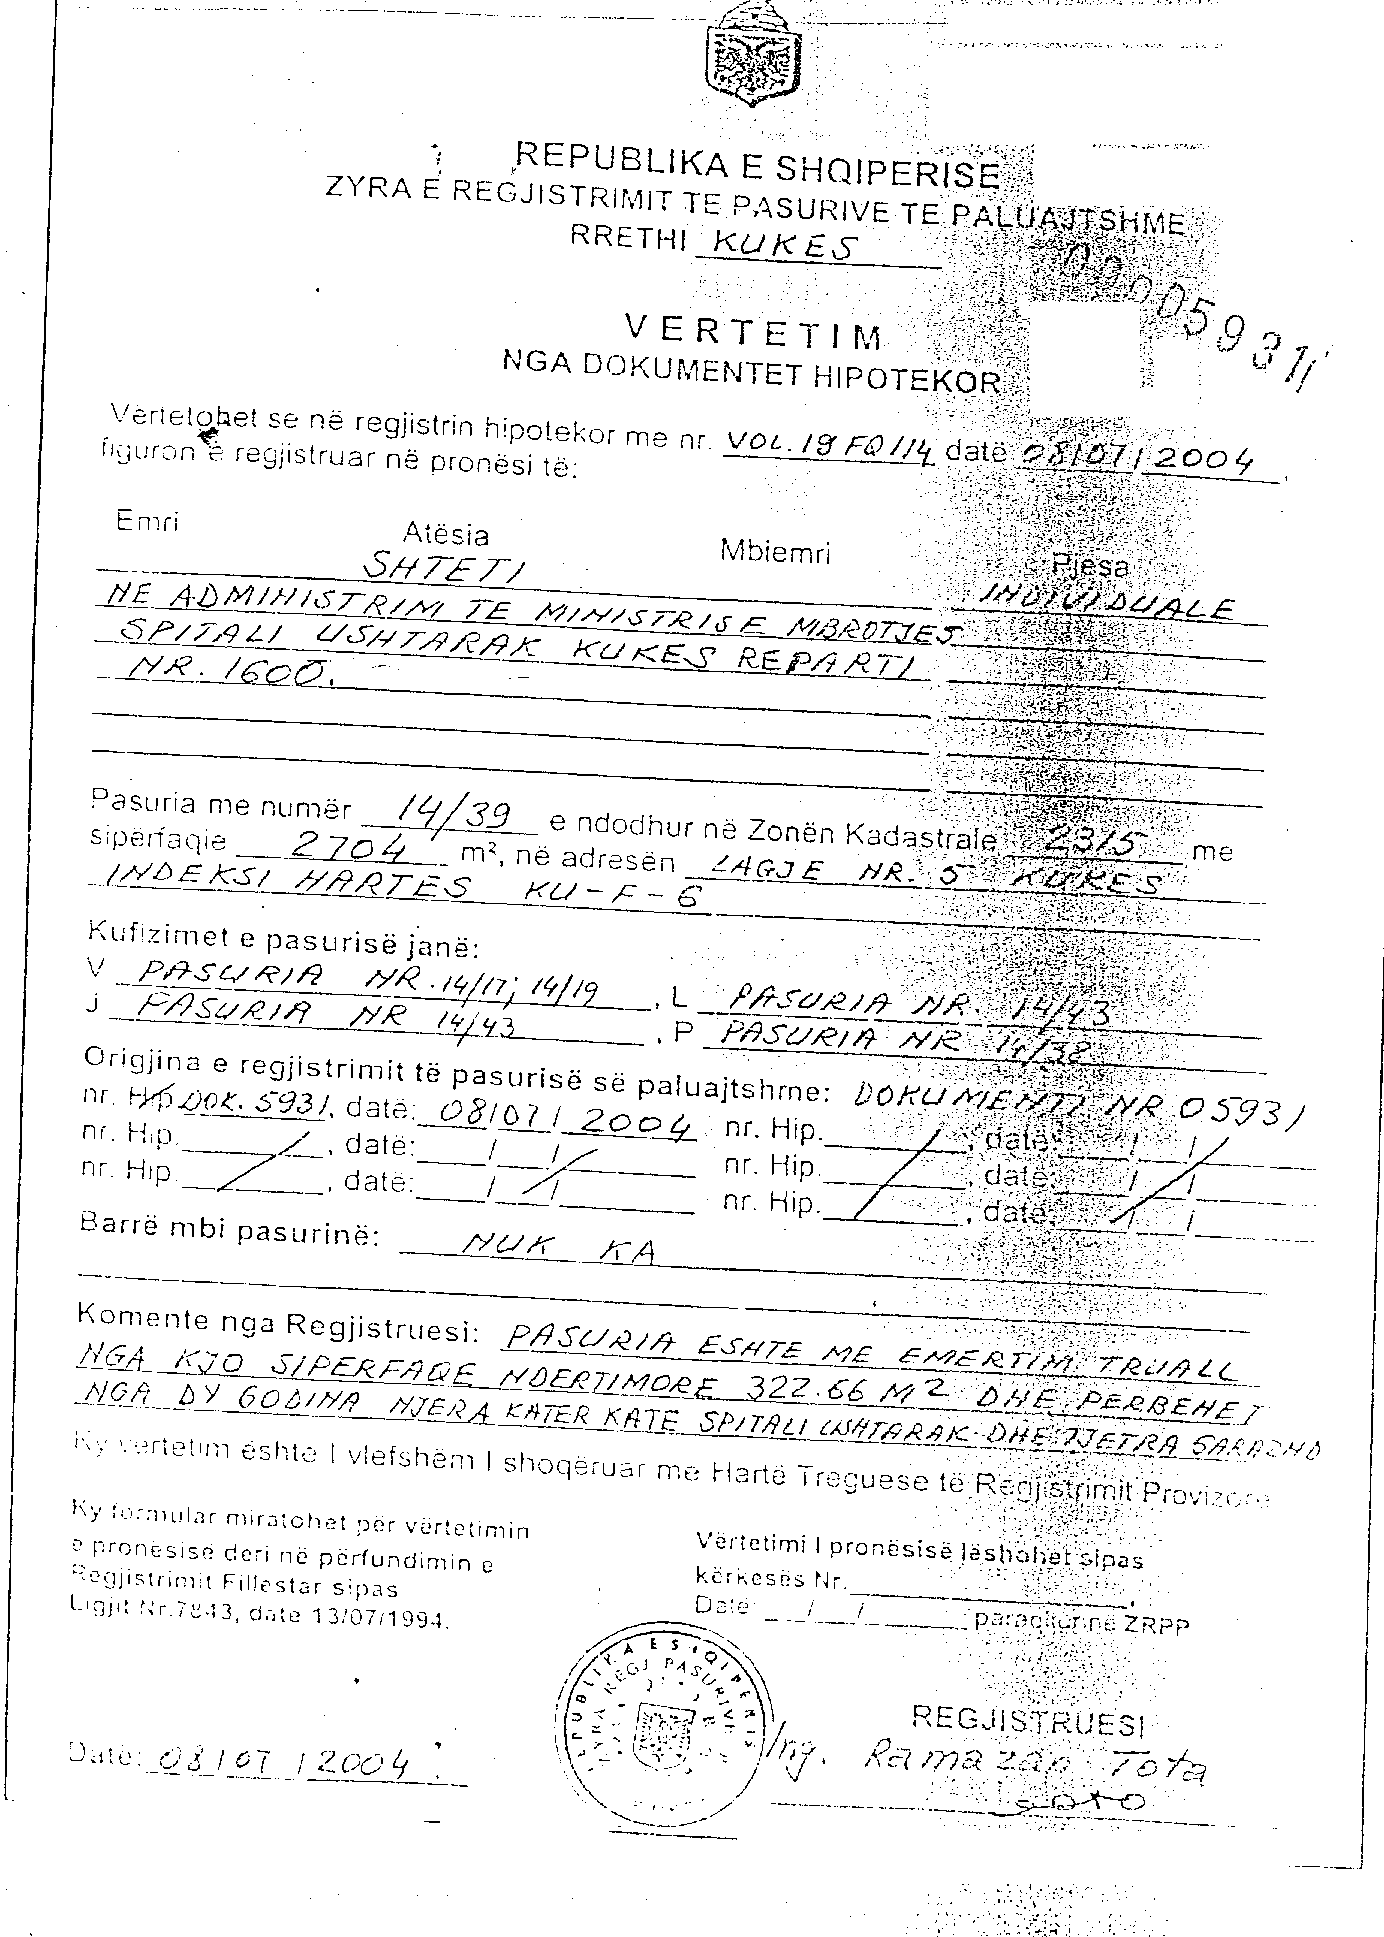 REPUBLIKA E SHQIPERISE
ZYRA E REGJISTRIMIT TE PASURIVE TE PALUAJTSHME
RRETHI KUKES
00005931
VERTETIM
NGA DOKUMENTET HIPOTEKOR
Vërtetohet se në regjistrin hipotekor me nr. VOL.19 FQ 114 datë 08/07/2004
figuron e regjistruar në pronësi të:
Emri Atësia Mbiemri Pjesa
SHTETI INDIVIDUALE
NE ADMINISTRIM TE MINISTRISE MBROTJES
SPITALI USHTARAK KUKES REPARTI
NR. 1600.
Pasuria me numër 14/39 e ndodhur në Zonën Kadastrale 2315 me
sipërfaqie 2704 m², në adresën LAGJE NR. 5 KUKES
INDEKSI HARTES KU-F-6
Kufizimet e pasurisë janë:
V PASURIA NR. 14/17; 14/19, L PASURIA NR. 14/43
J PASURIA NR 14/43, P PASURIA NR 14/38
Origjina e regjistrimit të pasurisë së paluajtshme: DOKUMENTI NR 05931
nr. Hip DOK. 5931, datë: 08/07/2004 nr. Hip. , datë: / /
nr. Hip. , datë: / / nr. Hip. , datë: / /
nr. Hip. , datë: / / nr. Hip. , datë: / /
Barrë mbi pasurinë: NUK KA
Komente nga Regjistruesi: PASURIA ESHTE ME EMERTIM TRUALL
NGA KJO SIPERFAQE NDERTIMORE 322.66 M2 DHE PERBEHET
NGA DY GODINA NJERA KATER KATE SPITALI USHTARAK DHE TJETRA
Ky vertetim është I vlefshëm I shoqëruar me Hartë Treguese të Regjistrimit Provizore
Ky formular miratohet për vërtetimin
e pronësisë deri në përfundimin e
Regjistrimit Fillestar sipas
Ligjit Nr.7843, date 13/07/1994.
Vërtetimi I pronësisë lëshohet sipas
kërkesës Nr.
Datë / / paraqitur në ZRPP
REPUBLIKA E SHQIPERIS
ZYRA REGJ PASURIVE
REGJISTRUESI
Ing. Ramazan Tota
Datë: 08/07/2004